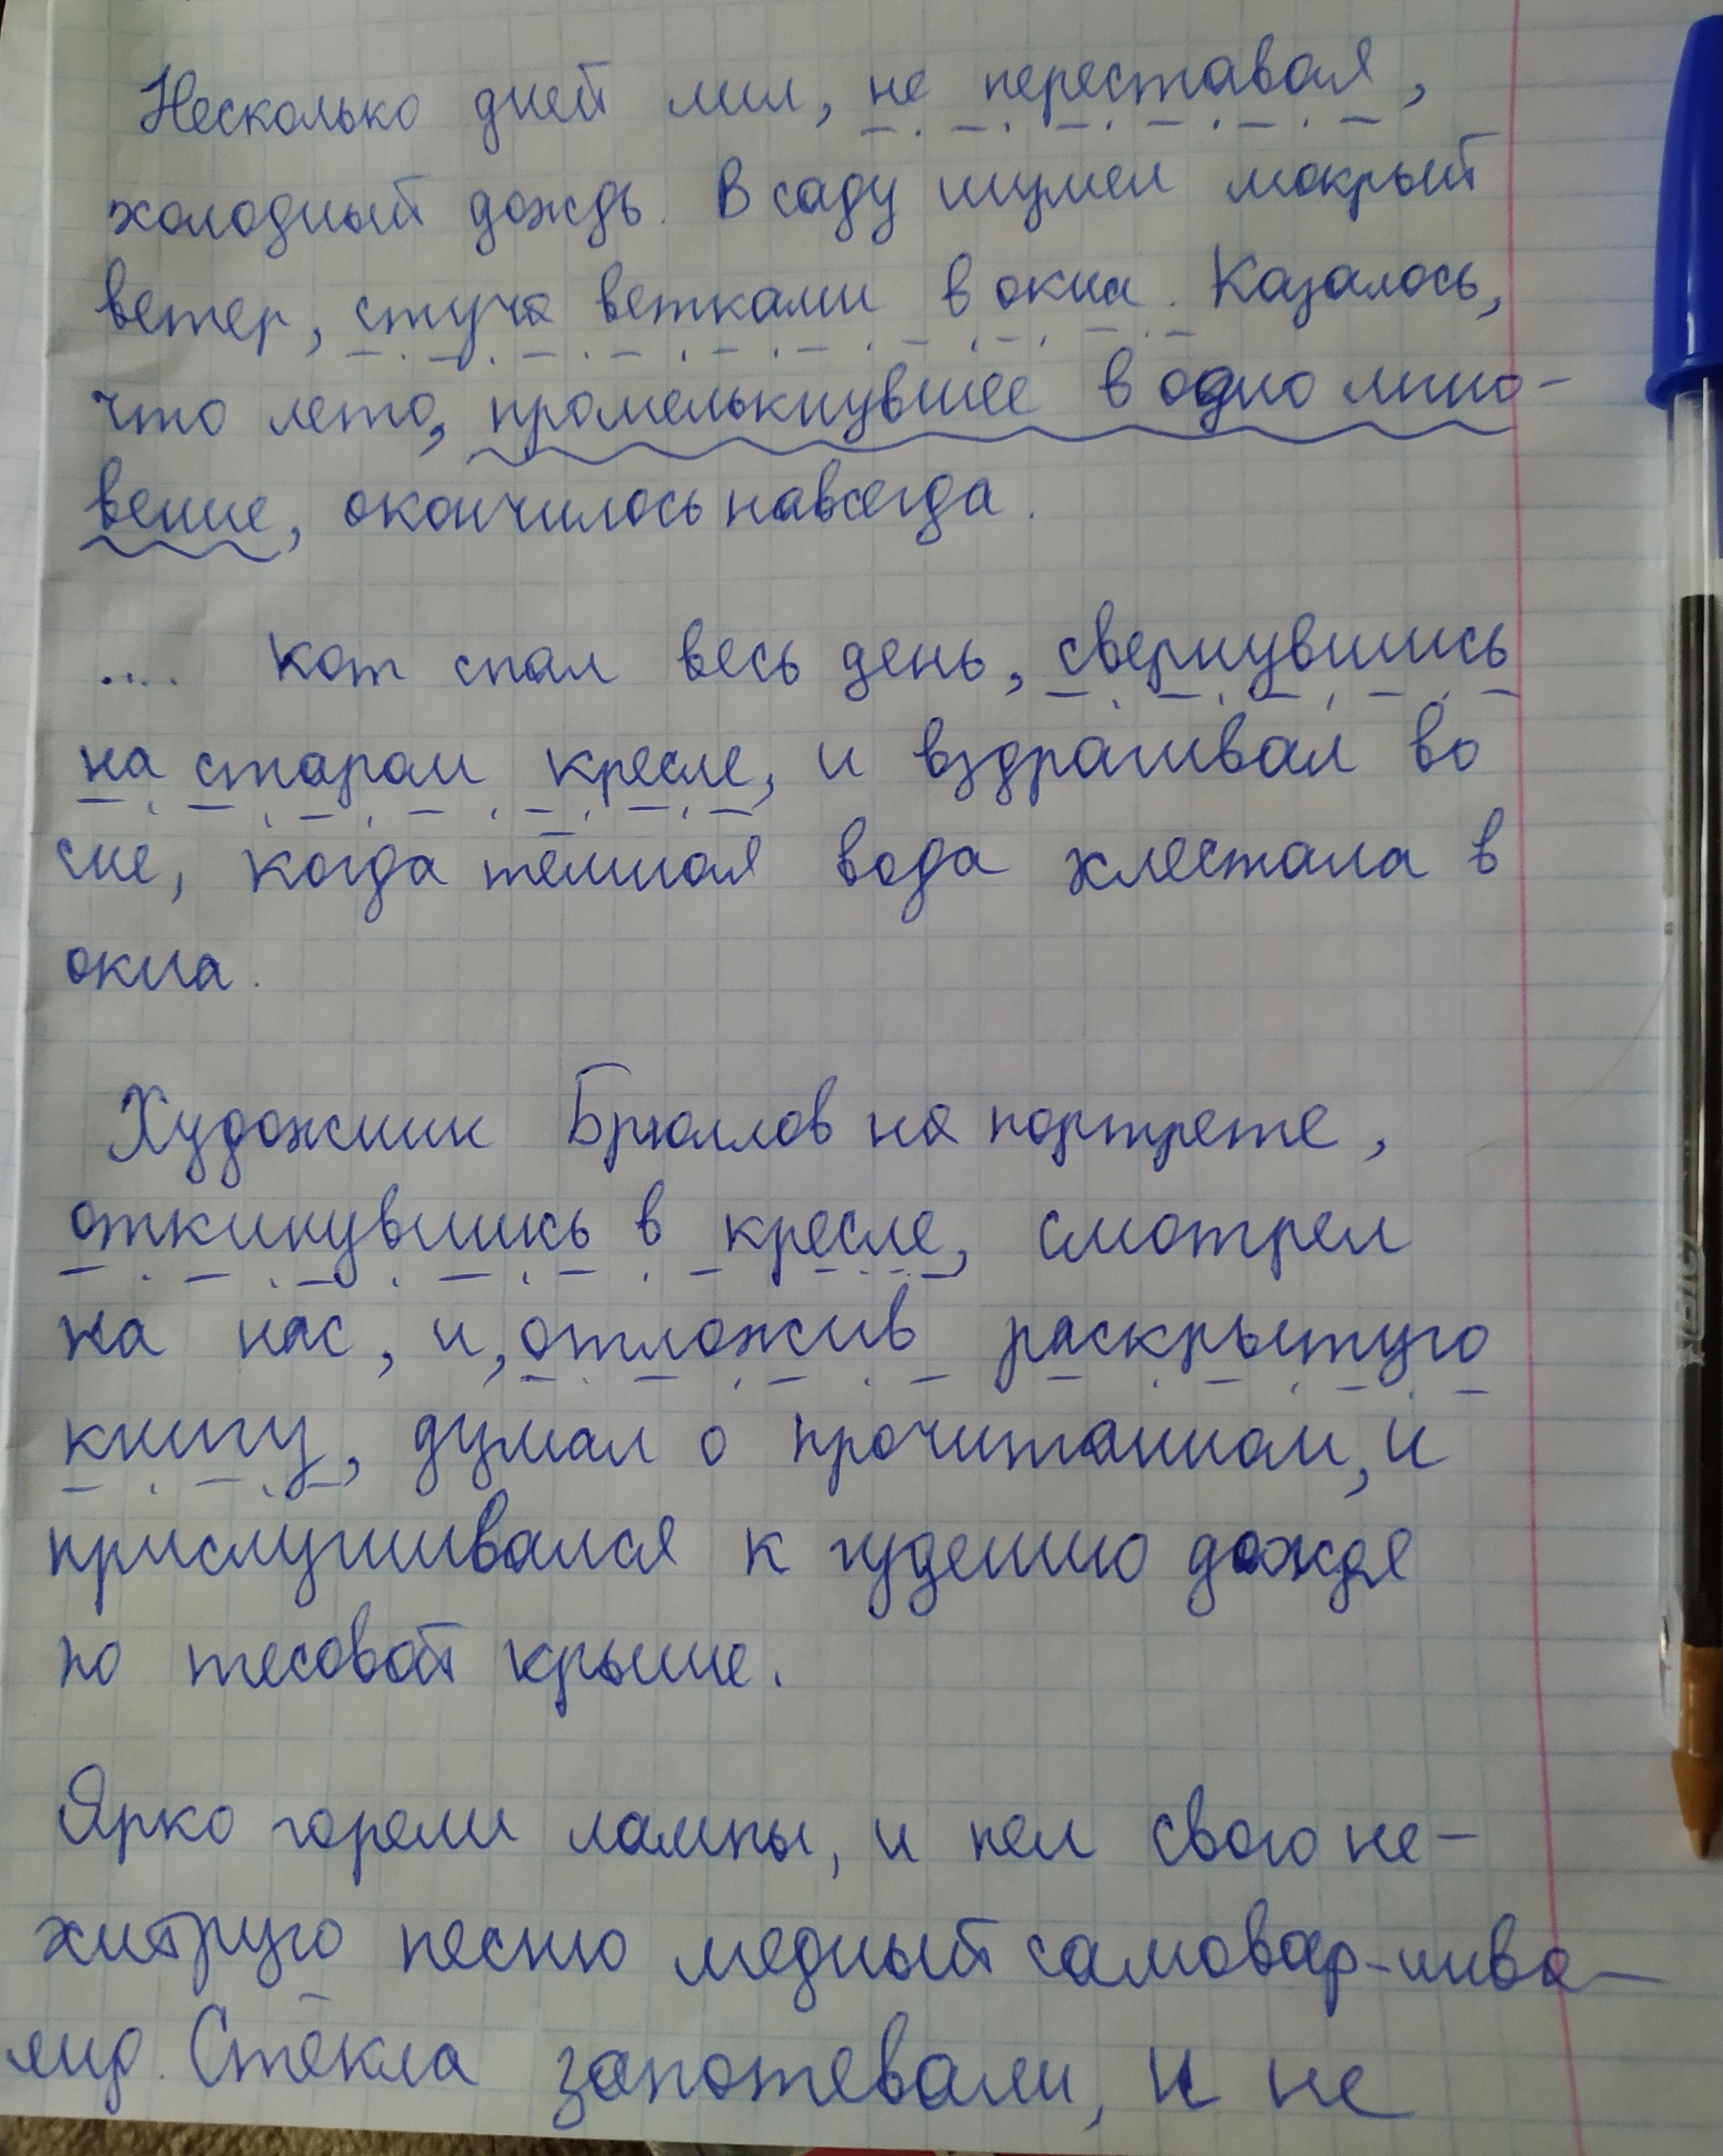 Несколько дней лил, не переставая,
холодный дождь. В саду шумел мокрый
ветер, стуча ветками в окна. Казалось,
что лето, промелькнувшее в одно мгно-
вение, окончилось навсегда.
.... Кот спал весь день, свернувшись
на старом кресле, и вздрагивал во
сне, когда тёмная вода хлестала в
окна.
Художник Брюллов на портрете,
откинувшись в кресле, смотрел
на нас, и, отложив раскрытую
книгу, думал о прочитанном, и
прислушивался к гудению дождя
по тесовой крыше.
Ярко горели лампы, и пел свою не-
хитрую песню медный самовар-инва-
лид. Стёкла запотевали, и не